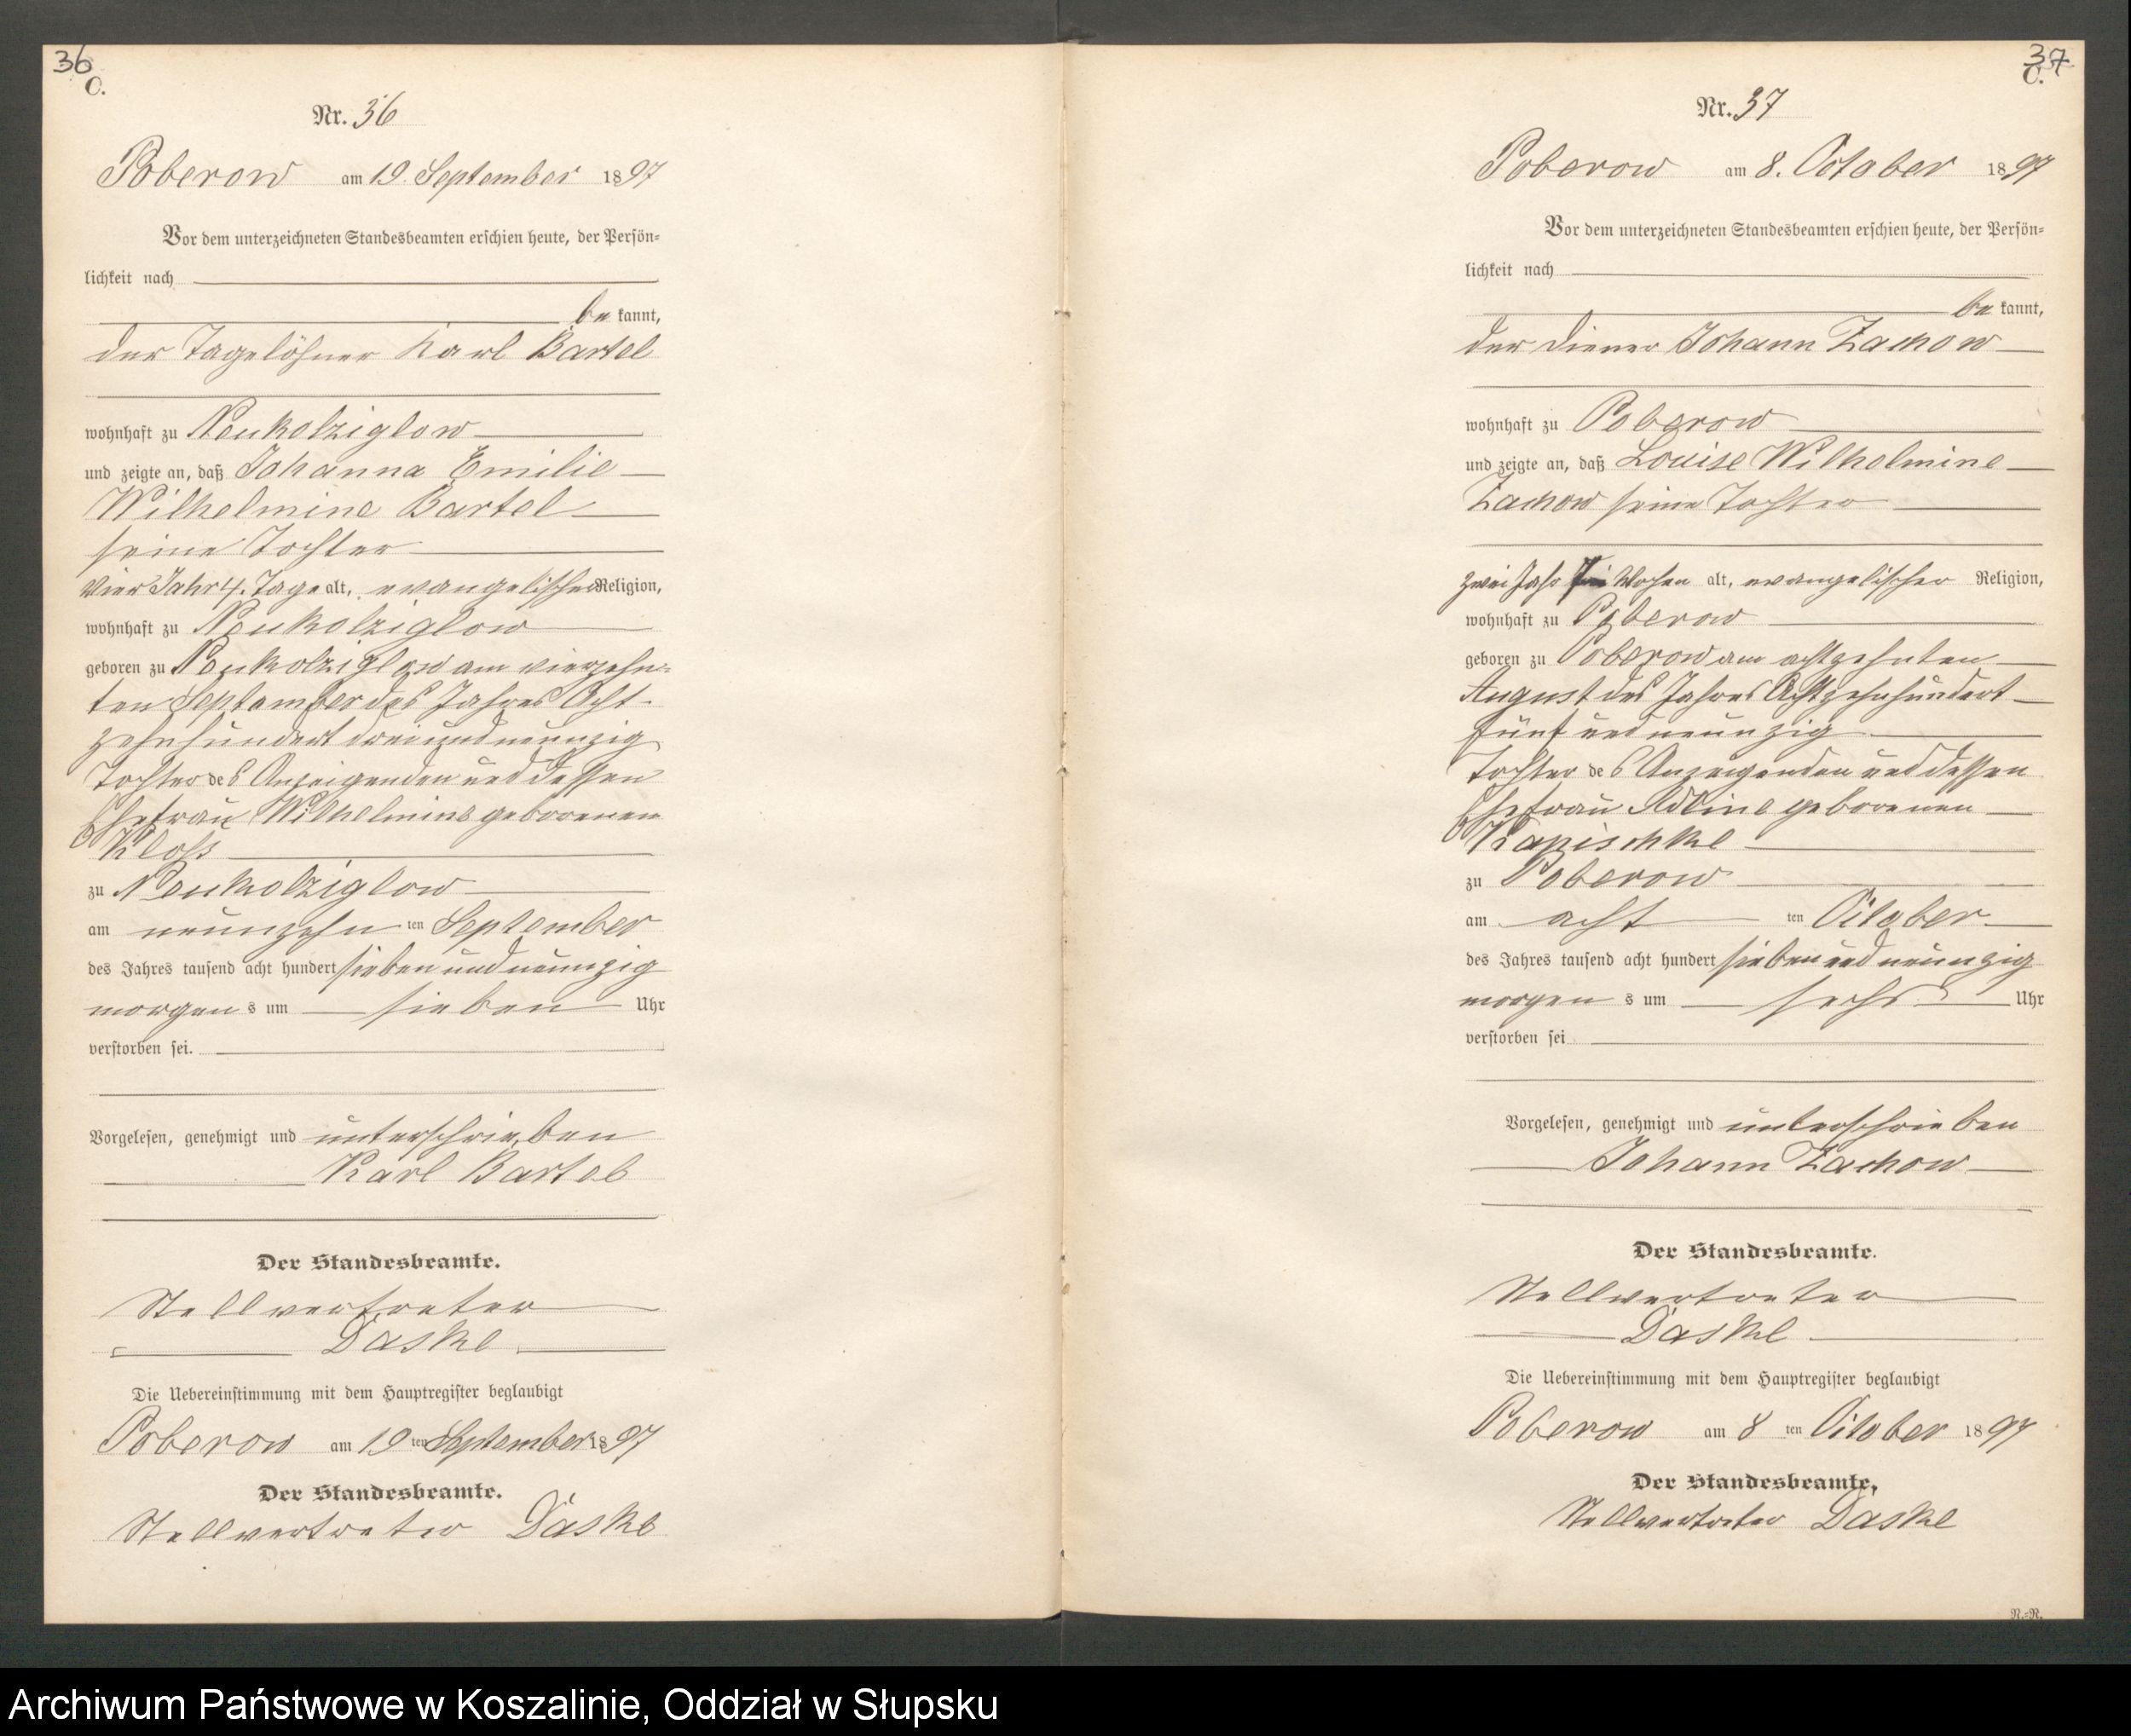 36
C.
Nr. 36
Poberow am 19. September 1897
Vor dem unterzeichneten Standesbeamten erschien heute, der Persön-
lichkeit nach
be kannt,
der Tagelöhner Karl Bartel
wohnhaft zu Neukolziglow
und zeigte an, daß Johanna Emilie
Wilhelmine Bartel
seine Tochter
Vier Jahr 4. Tage alt, evangelischer Religion,
wohnhaft zu Neukolziglow
geboren zu Neukolziglow am vierzehn-
ten September des Jahres Acht-
zehnhundert dreiundneunzig
Tochter des Anzeigenden und dessen
Ehefrau Wilhelmine geborenen
Kloss
zu Neukolziglow
am neunzehn ten September
des Jahres tausend acht hundert sieben und neunzig
morgen s um sieben Uhr
verstorben sei.
Vorgelesen, genehmigt und unterschrieben
Karl Bartel
Der Standesbeamte.
Stellvertreter
Daske
Die Uebereinstimmung mit dem Hauptregister beglaubigt
Poberow am 19 ten September 1897
Der Standesbeamte.
Stellvertreter Daske
37
C.
Nr. 37
Poberow am 8. October 1897
Vor dem unterzeichneten Standesbeamten erschien heute, der Persön-
lichkeit nach
be kannt,
der Diener Johann Zachow
wohnhaft zu Poberow
und zeigte an, daß Louise Wilhelmine
Zachow seine Tochter
zwei Jahr Wochen alt, evangelischer Religion,
wohnhaft zu Poberow
geboren zu Poberow am achtzehnten
August des Jahres Achtzehnhundert
fünf und neunzig
Tochter des Anzeigenden und dessen
Ehefrau geborenen
Kapischke
zu Poberow
am acht ten October
des Jahres tausend acht hundert sieben und neunzig
morgen s um sechs Uhr
verstorben sei
Vorgelesen, genehmigt und unterschrieben
Johann Zachow
Der Standesbeamte.
Stellvertreter
Daske
Die Uebereinstimmung mit dem Hauptregister beglaubigt
Poberow am 8 ten October 1897
Der Standesbeamte,
Stellvertreter Daske
R.=R.
Archiwum Państwowe w Koszalinie, Oddział w Słupsku